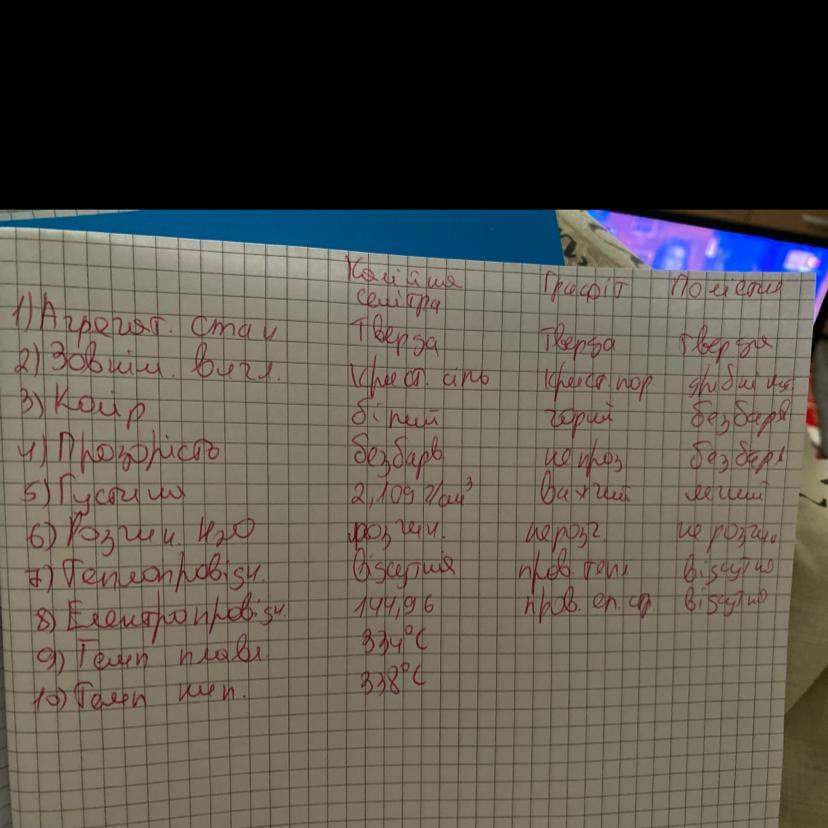 Калійна селітра Графіт Поліетил
1) Агрегат. стан Тверда Тверда Тверда
2) Зовніш. вигл. Крист. сіль Крист. пор.
3) Колір білий чорний безбарв
4) Прозорість безбарв. не проз безбарв
5) Густина 2,109 г/см³ важчий легший
6) Розчин. H2O розчин. нерозч. не розчин.
7) Теплопровідн. відсутня пров. тепл відсутня
8) Електропровідн. 144,96 пров. ел. ст відсутня
9) Темп плавл 334°C
10) Темп кип. 338°C